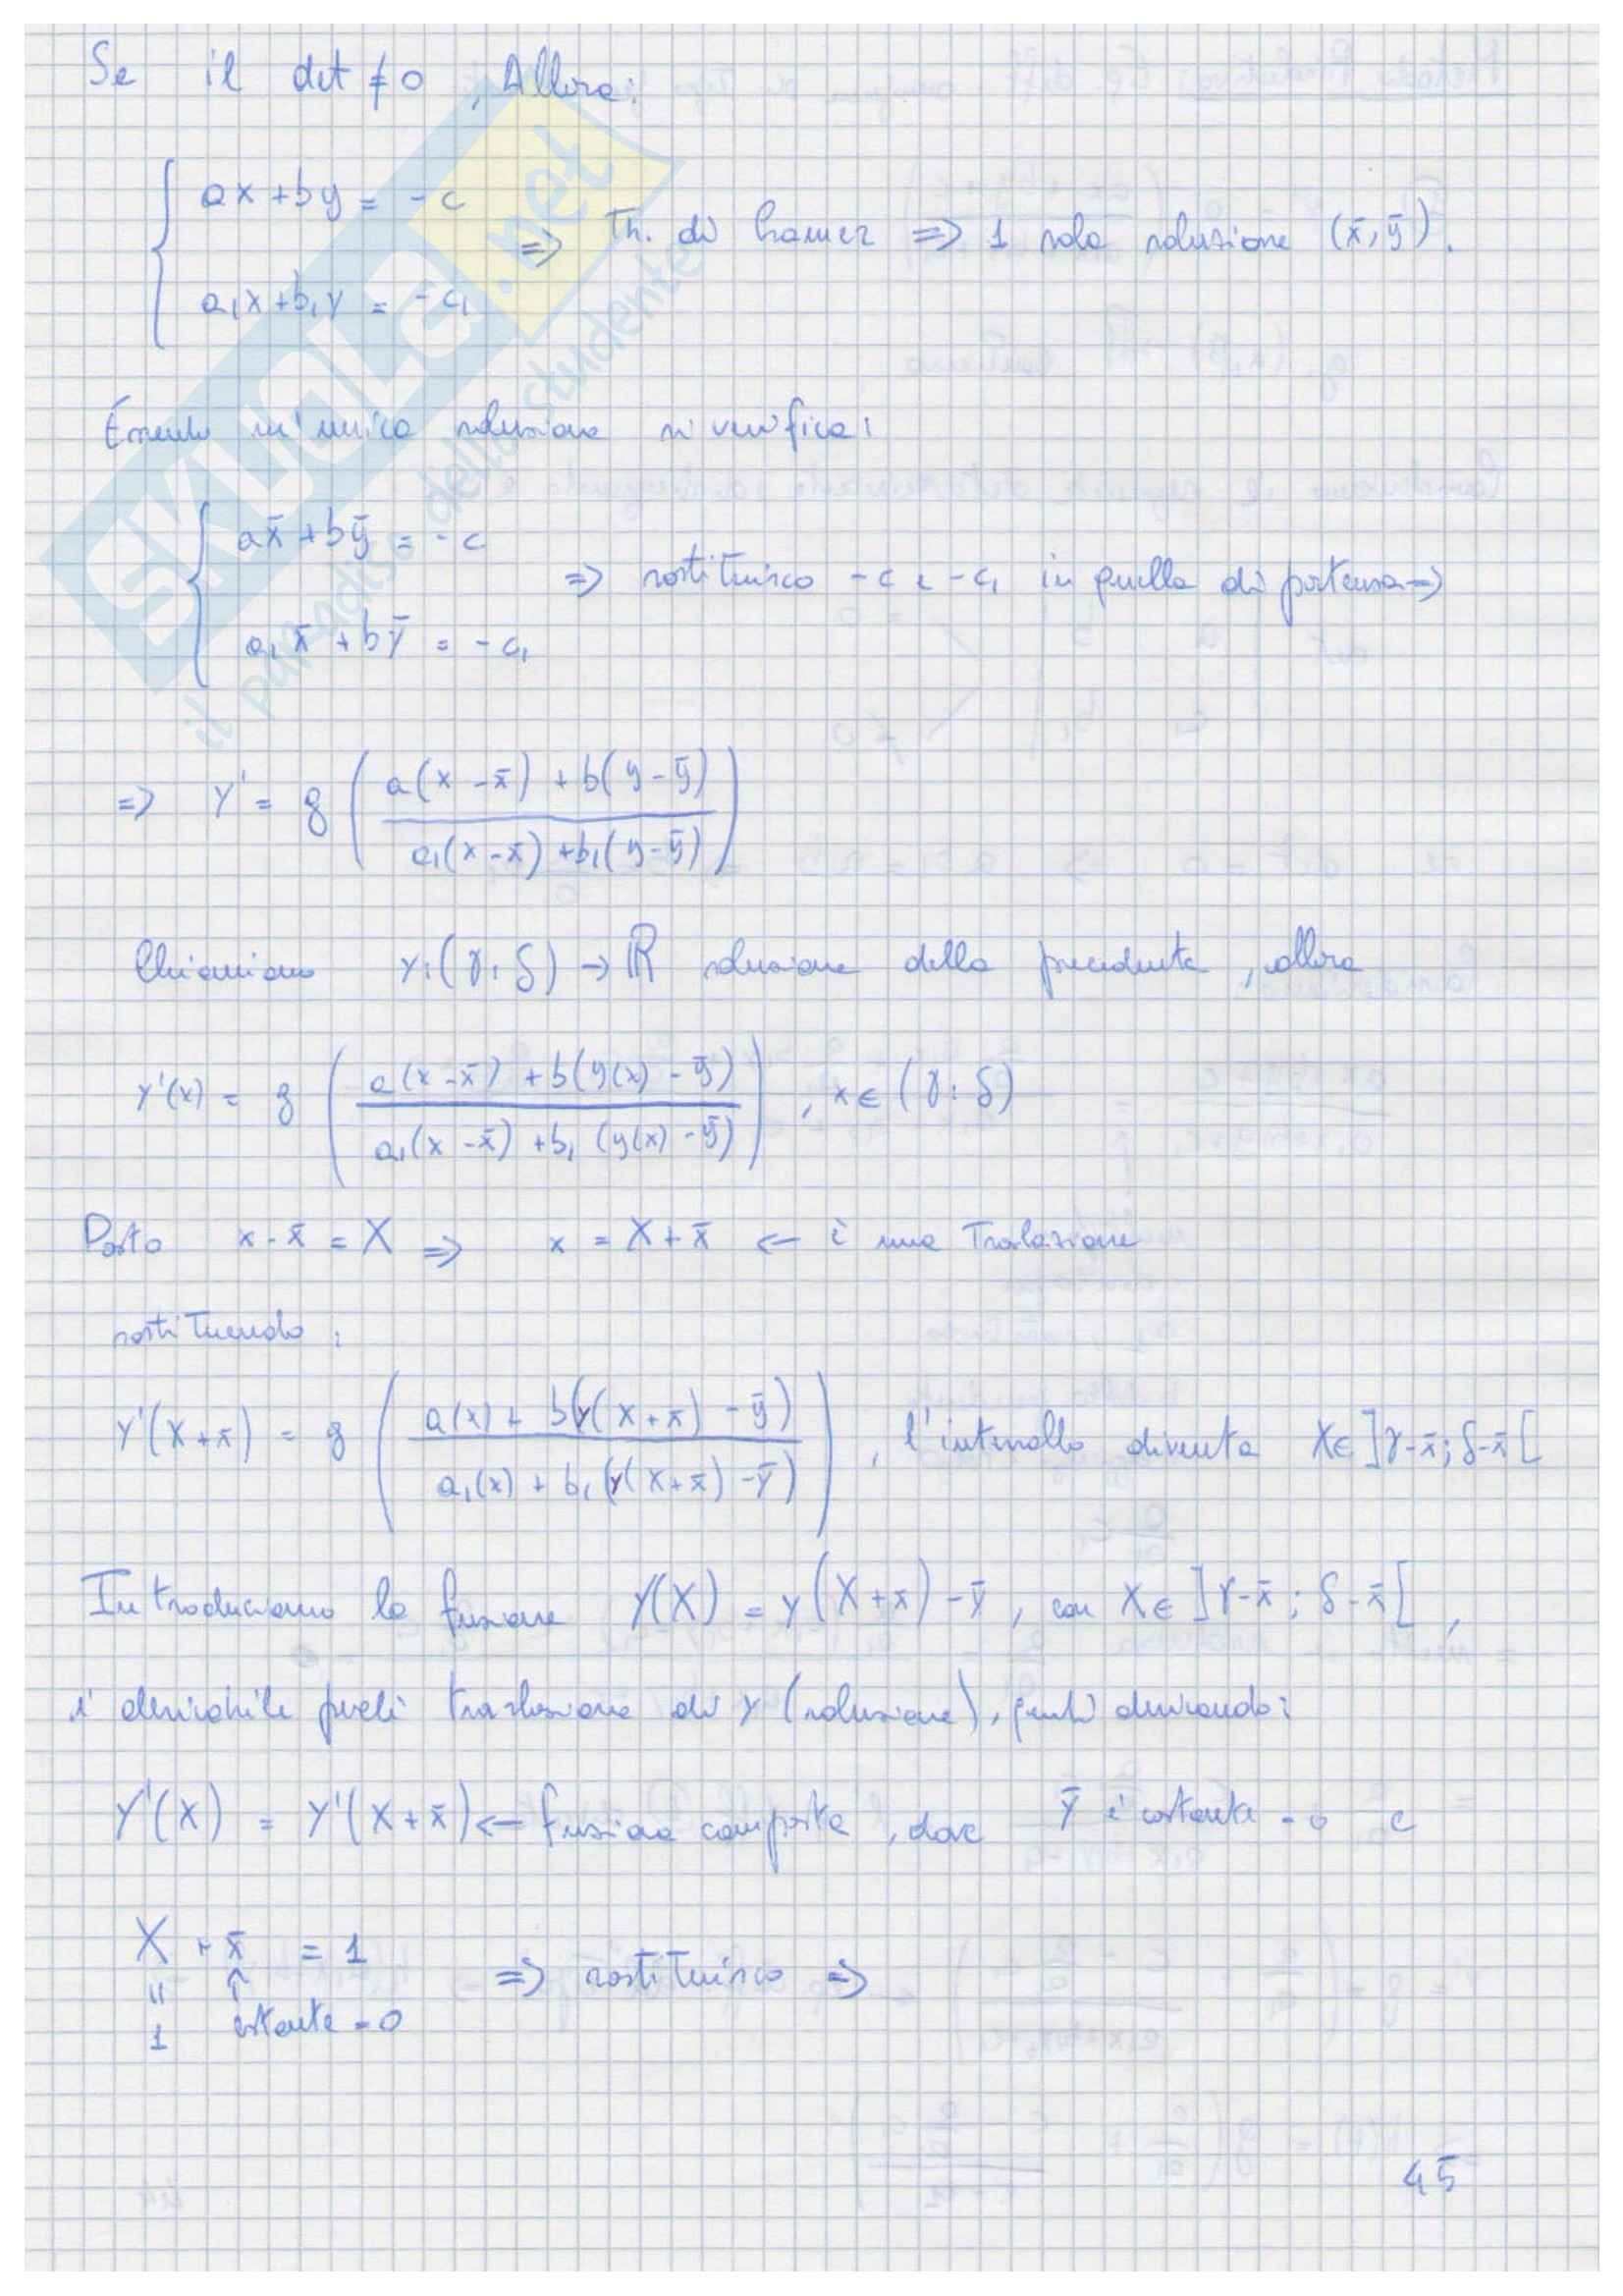 Se il det ≠ 0, Allora:
{ ax + by = -c
=> Th. di Cramer => 1 sola soluzione (x̄, ȳ).
a₁x + b₁y = -c₁
Essendo un'unica soluzione si verifica:
{ ax̄ + bȳ = -c
=> sostituisco -c e -c₁ in quella di partenza =>
a₁x̄ + bȳ = -c₁
=> y' = g ( a(x - x̄) + b(y - ȳ) / a₁(x - x̄) + b₁(y - ȳ) )
Chiamiamo y: (γ; δ) → ℝ soluzione della precedente, allora
y'(x) = g ( a(x - x̄) + b(y(x) - ȳ) / a₁(x - x̄) + b₁(y(x) - ȳ) ), x ∈ (γ; δ)
Posto x - x̄ = X => x = X + x̄ ← è una Traslazione
sostituendo:
y'(X + x̄) = g ( a(x) + b(y(X + x̄) - ȳ) / a₁(x) + b₁(y(X + x̄) - ȳ) ), l'intervallo diventa X ∈ ]γ - x̄; δ - x̄[
Introduciamo la funzione Y(X) = y(X + x̄) - ȳ, con X ∈ ]γ - x̄; δ - x̄[,
è derivabile perché traslazione di y (soluzione), quindi derivando:
Y'(X) = y'(X + x̄) ← funzione composta, dove ȳ è costante = 0 e
X + x̄ = 1 => sostituisco =>
" ↑
1 costante = 0
45
SKUOLA.net
il paradiso dello studente